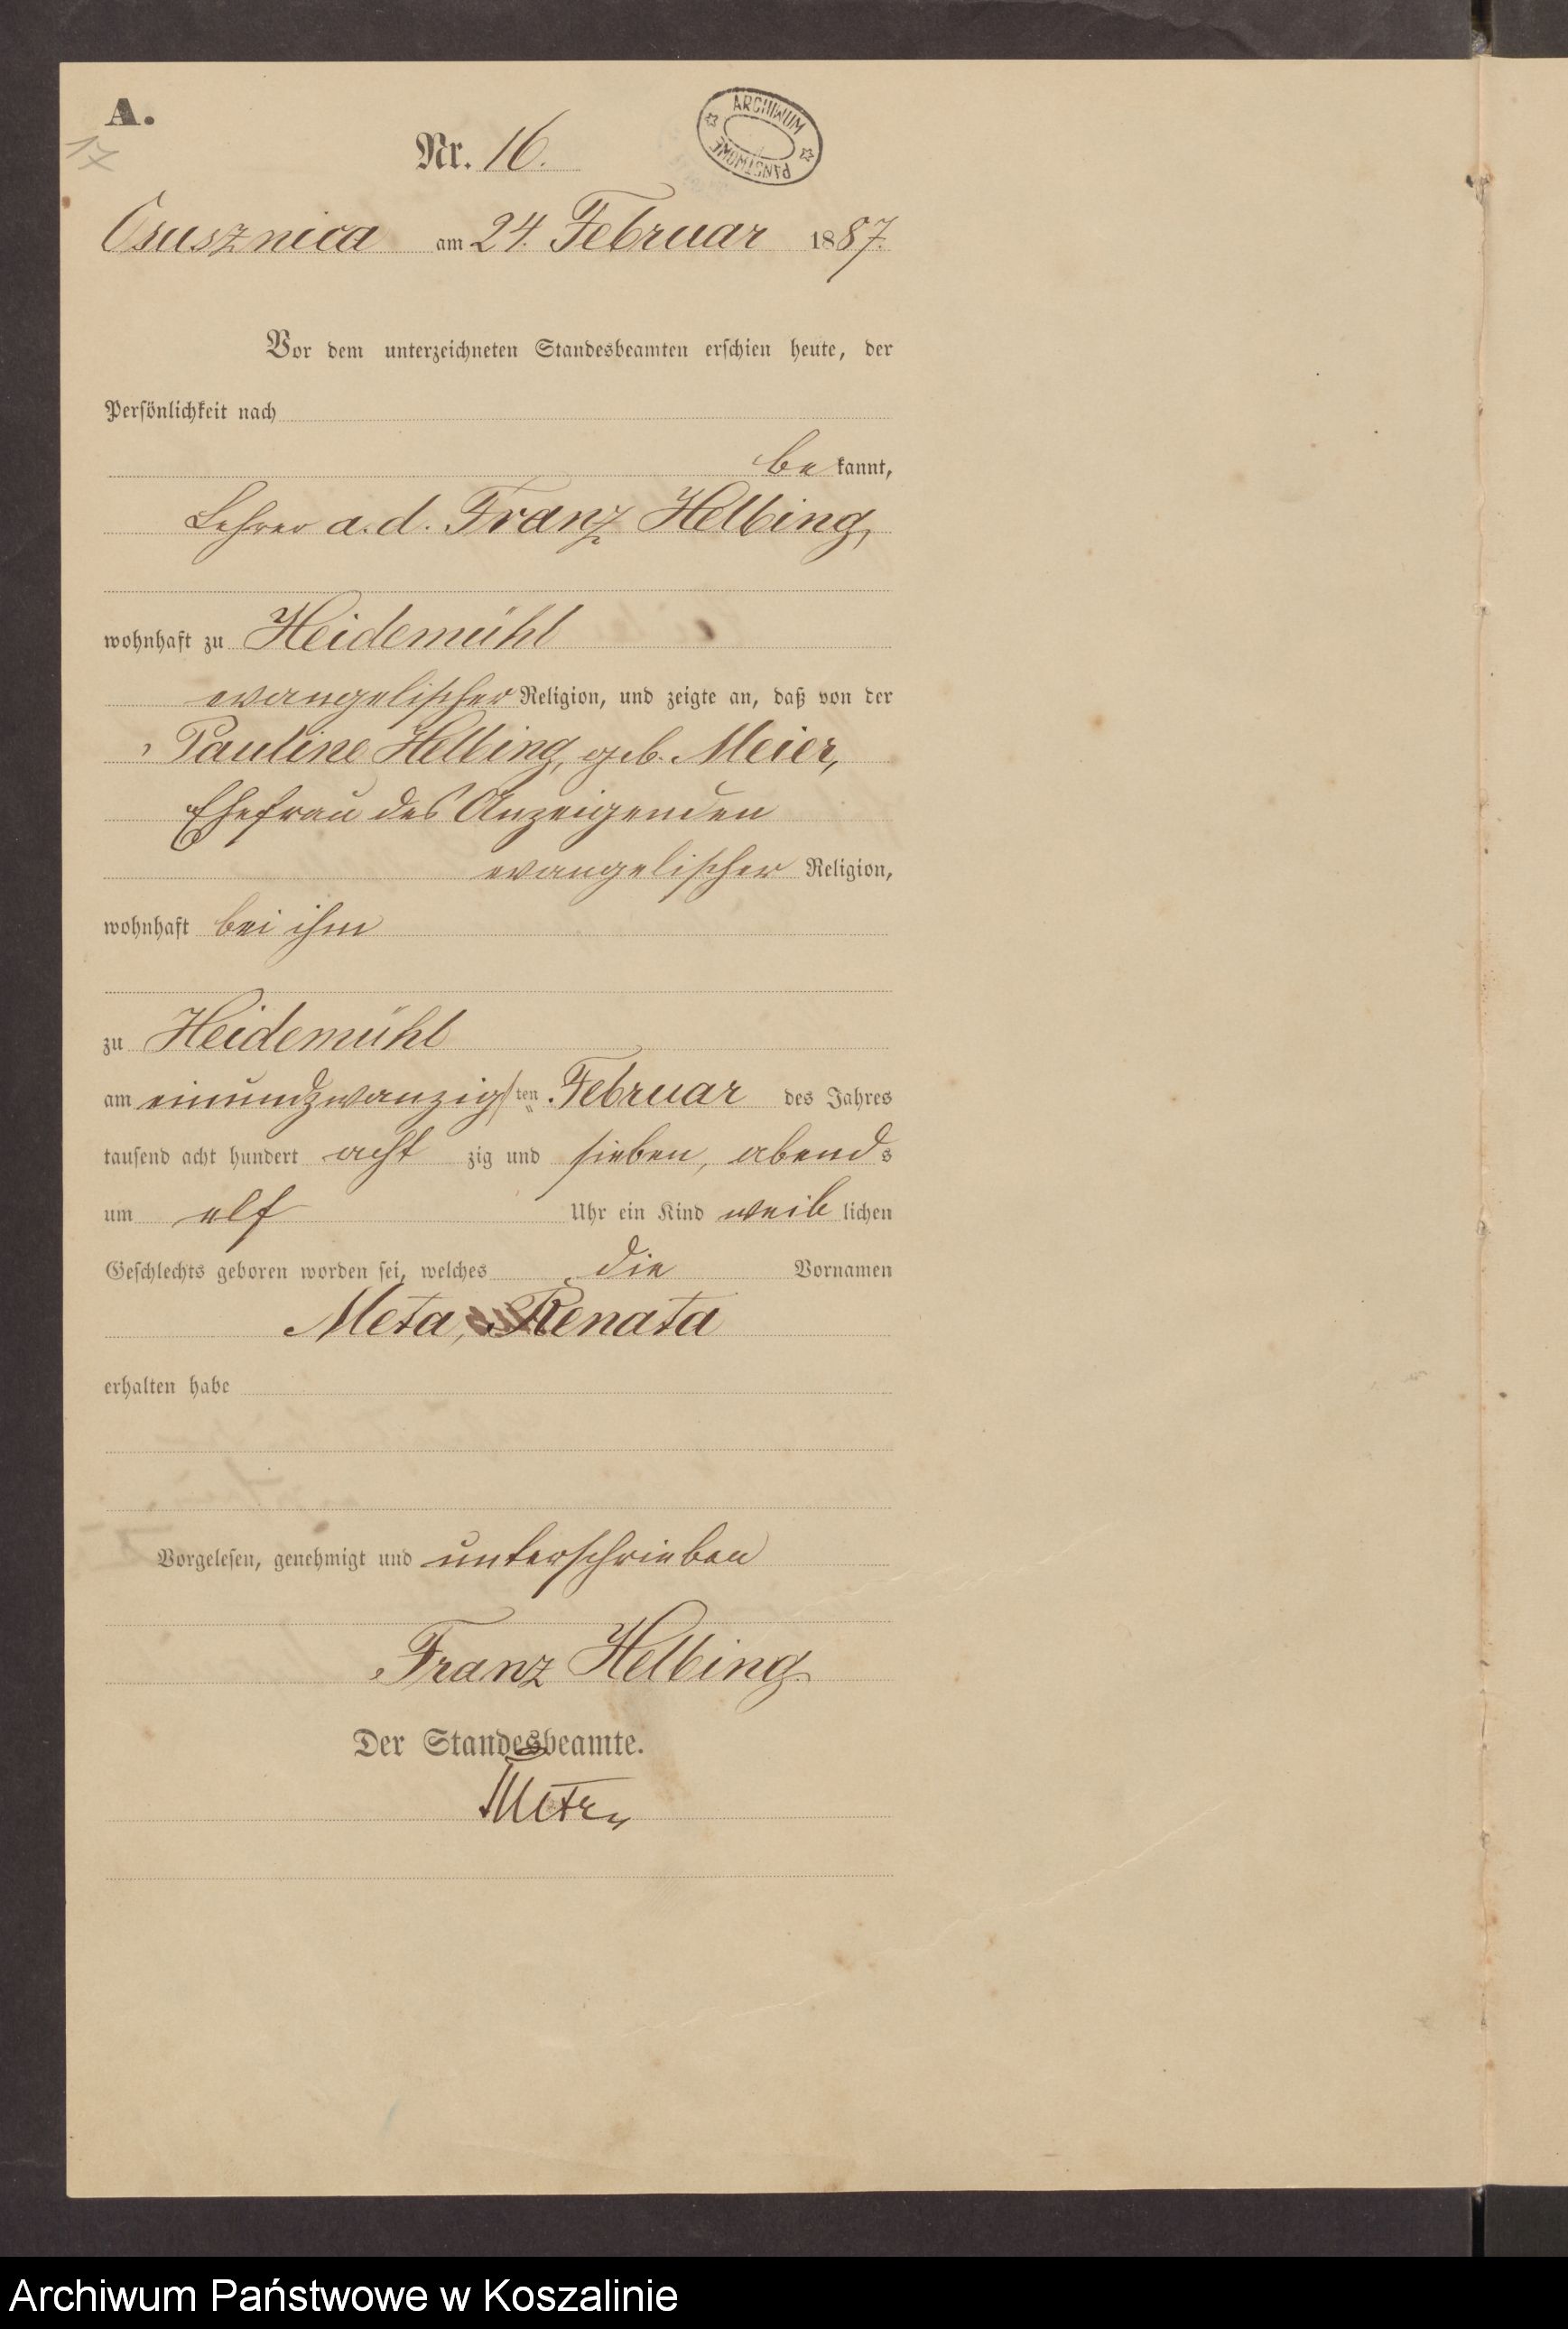 A.
17
Nr. 16.
ARCHIWUM PAŃSTWOWE
Osusznica am 24. Februar 1887.
Vor dem unterzeichneten Standesbeamten erschien heute, der
Persönlichkeit nach
bekannt,
Lehrer a. d. Franz Helbing,
wohnhaft zu Heidemühl
evangelischer Religion, und zeigte an, daß von der
Pauline Helbing, geb. Meier,
Ehefrau des Anzeigenden
evangelischer Religion,
wohnhaft bei ihm
zu Heidemühl
am einundzwanzigsten Februar des Jahres
tausend acht hundert achtzig und sieben, abends
um elf Uhr ein Kind weiblichen
Geschlechts geboren worden sei, welches die Vornamen
Meta, Renata
erhalten habe
Vorgelesen, genehmigt und unterschrieben
Franz Helbing
Der Standesbeamte.
Archiwum Państwowe w Koszalinie